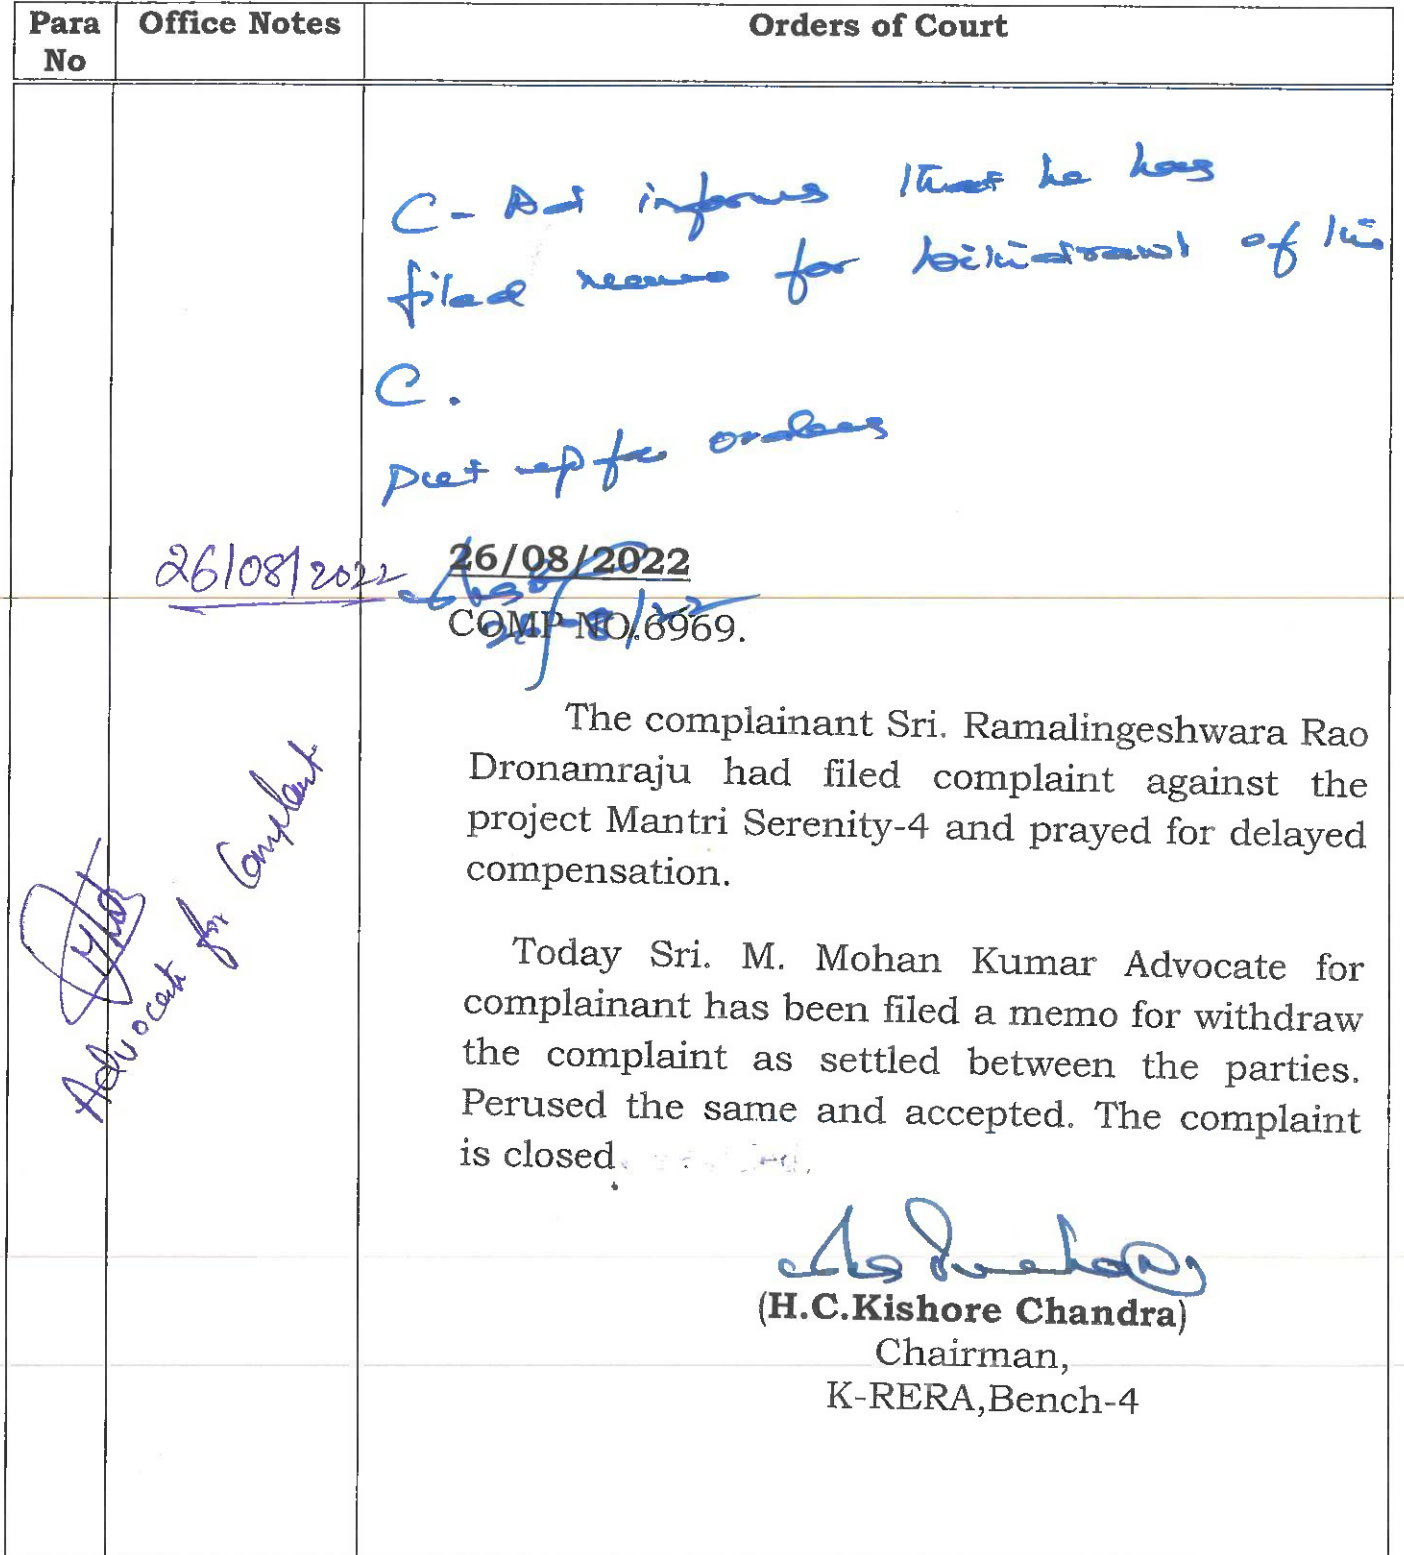 Para No
Office Notes
Orders of Court
C - Adt informs that he has
filed memo for withdrawal of his
C.
Put up for orders
26/08/2022
26/08/2022
COMP NO.6969.
The complainant Sri. Ramalingeshwara Rao
Dronamraju had filed complaint against the
project Mantri Serenity-4 and prayed for delayed
compensation.
Today Sri. M. Mohan Kumar Advocate for
complainant has been filed a memo for withdraw
the complaint as settled between the parties.
Perused the same and accepted. The complaint
is closed.
Advocate for Complant
(H.C.Kishore Chandra)
Chairman,
K-RERA,Bench-4